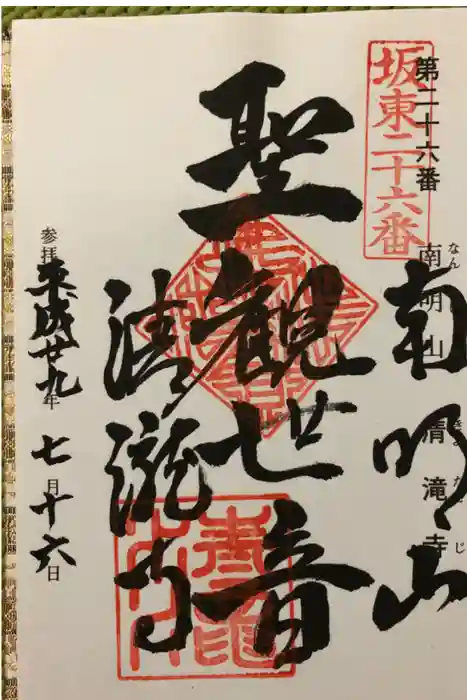 坂東二十六番
第二十六番
南明山 清滝寺
なん きよ たき じ
南明山
聖観世音
清瀧寺
参拝 平成廿九年 七月十六日